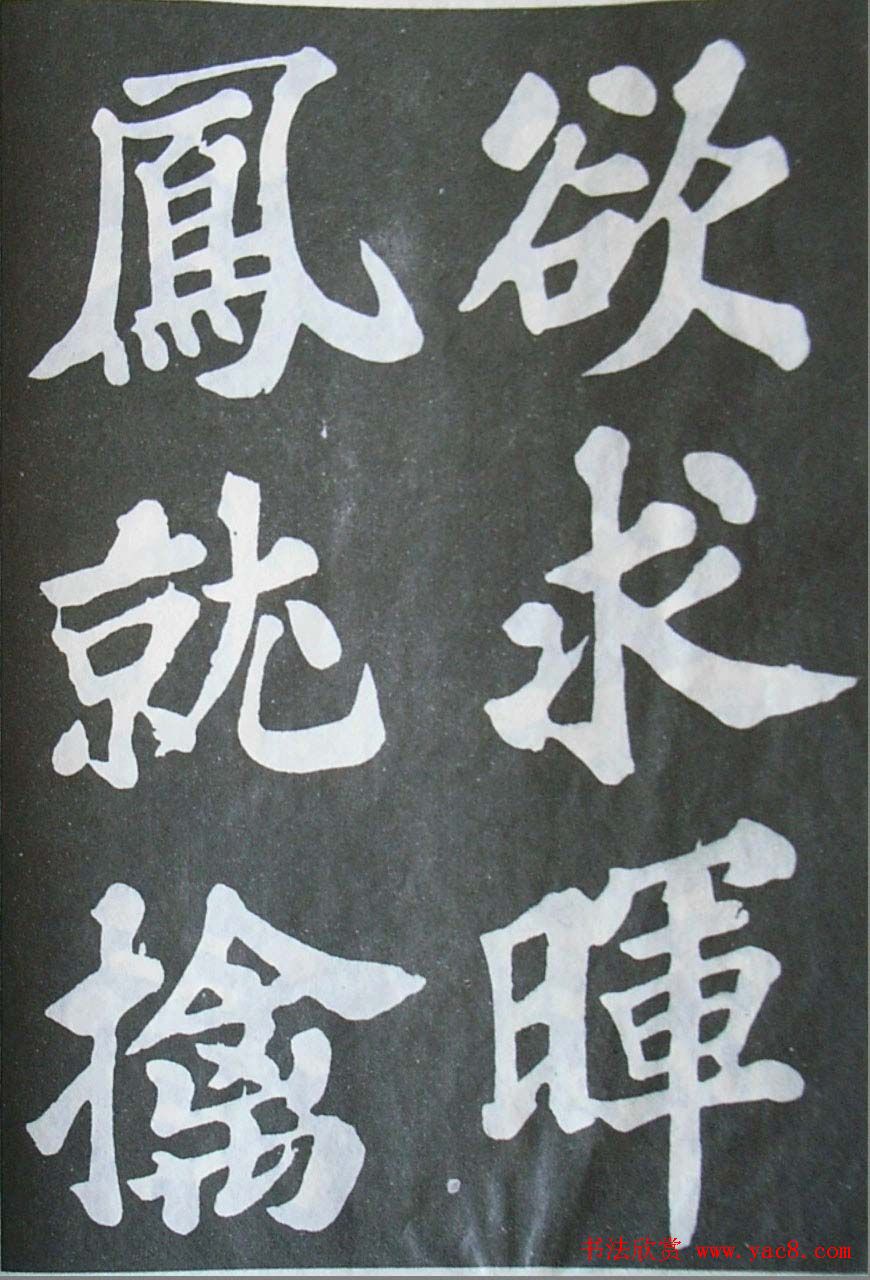 欲求暉
鳳就擒
书法欣赏 www.yac8.com